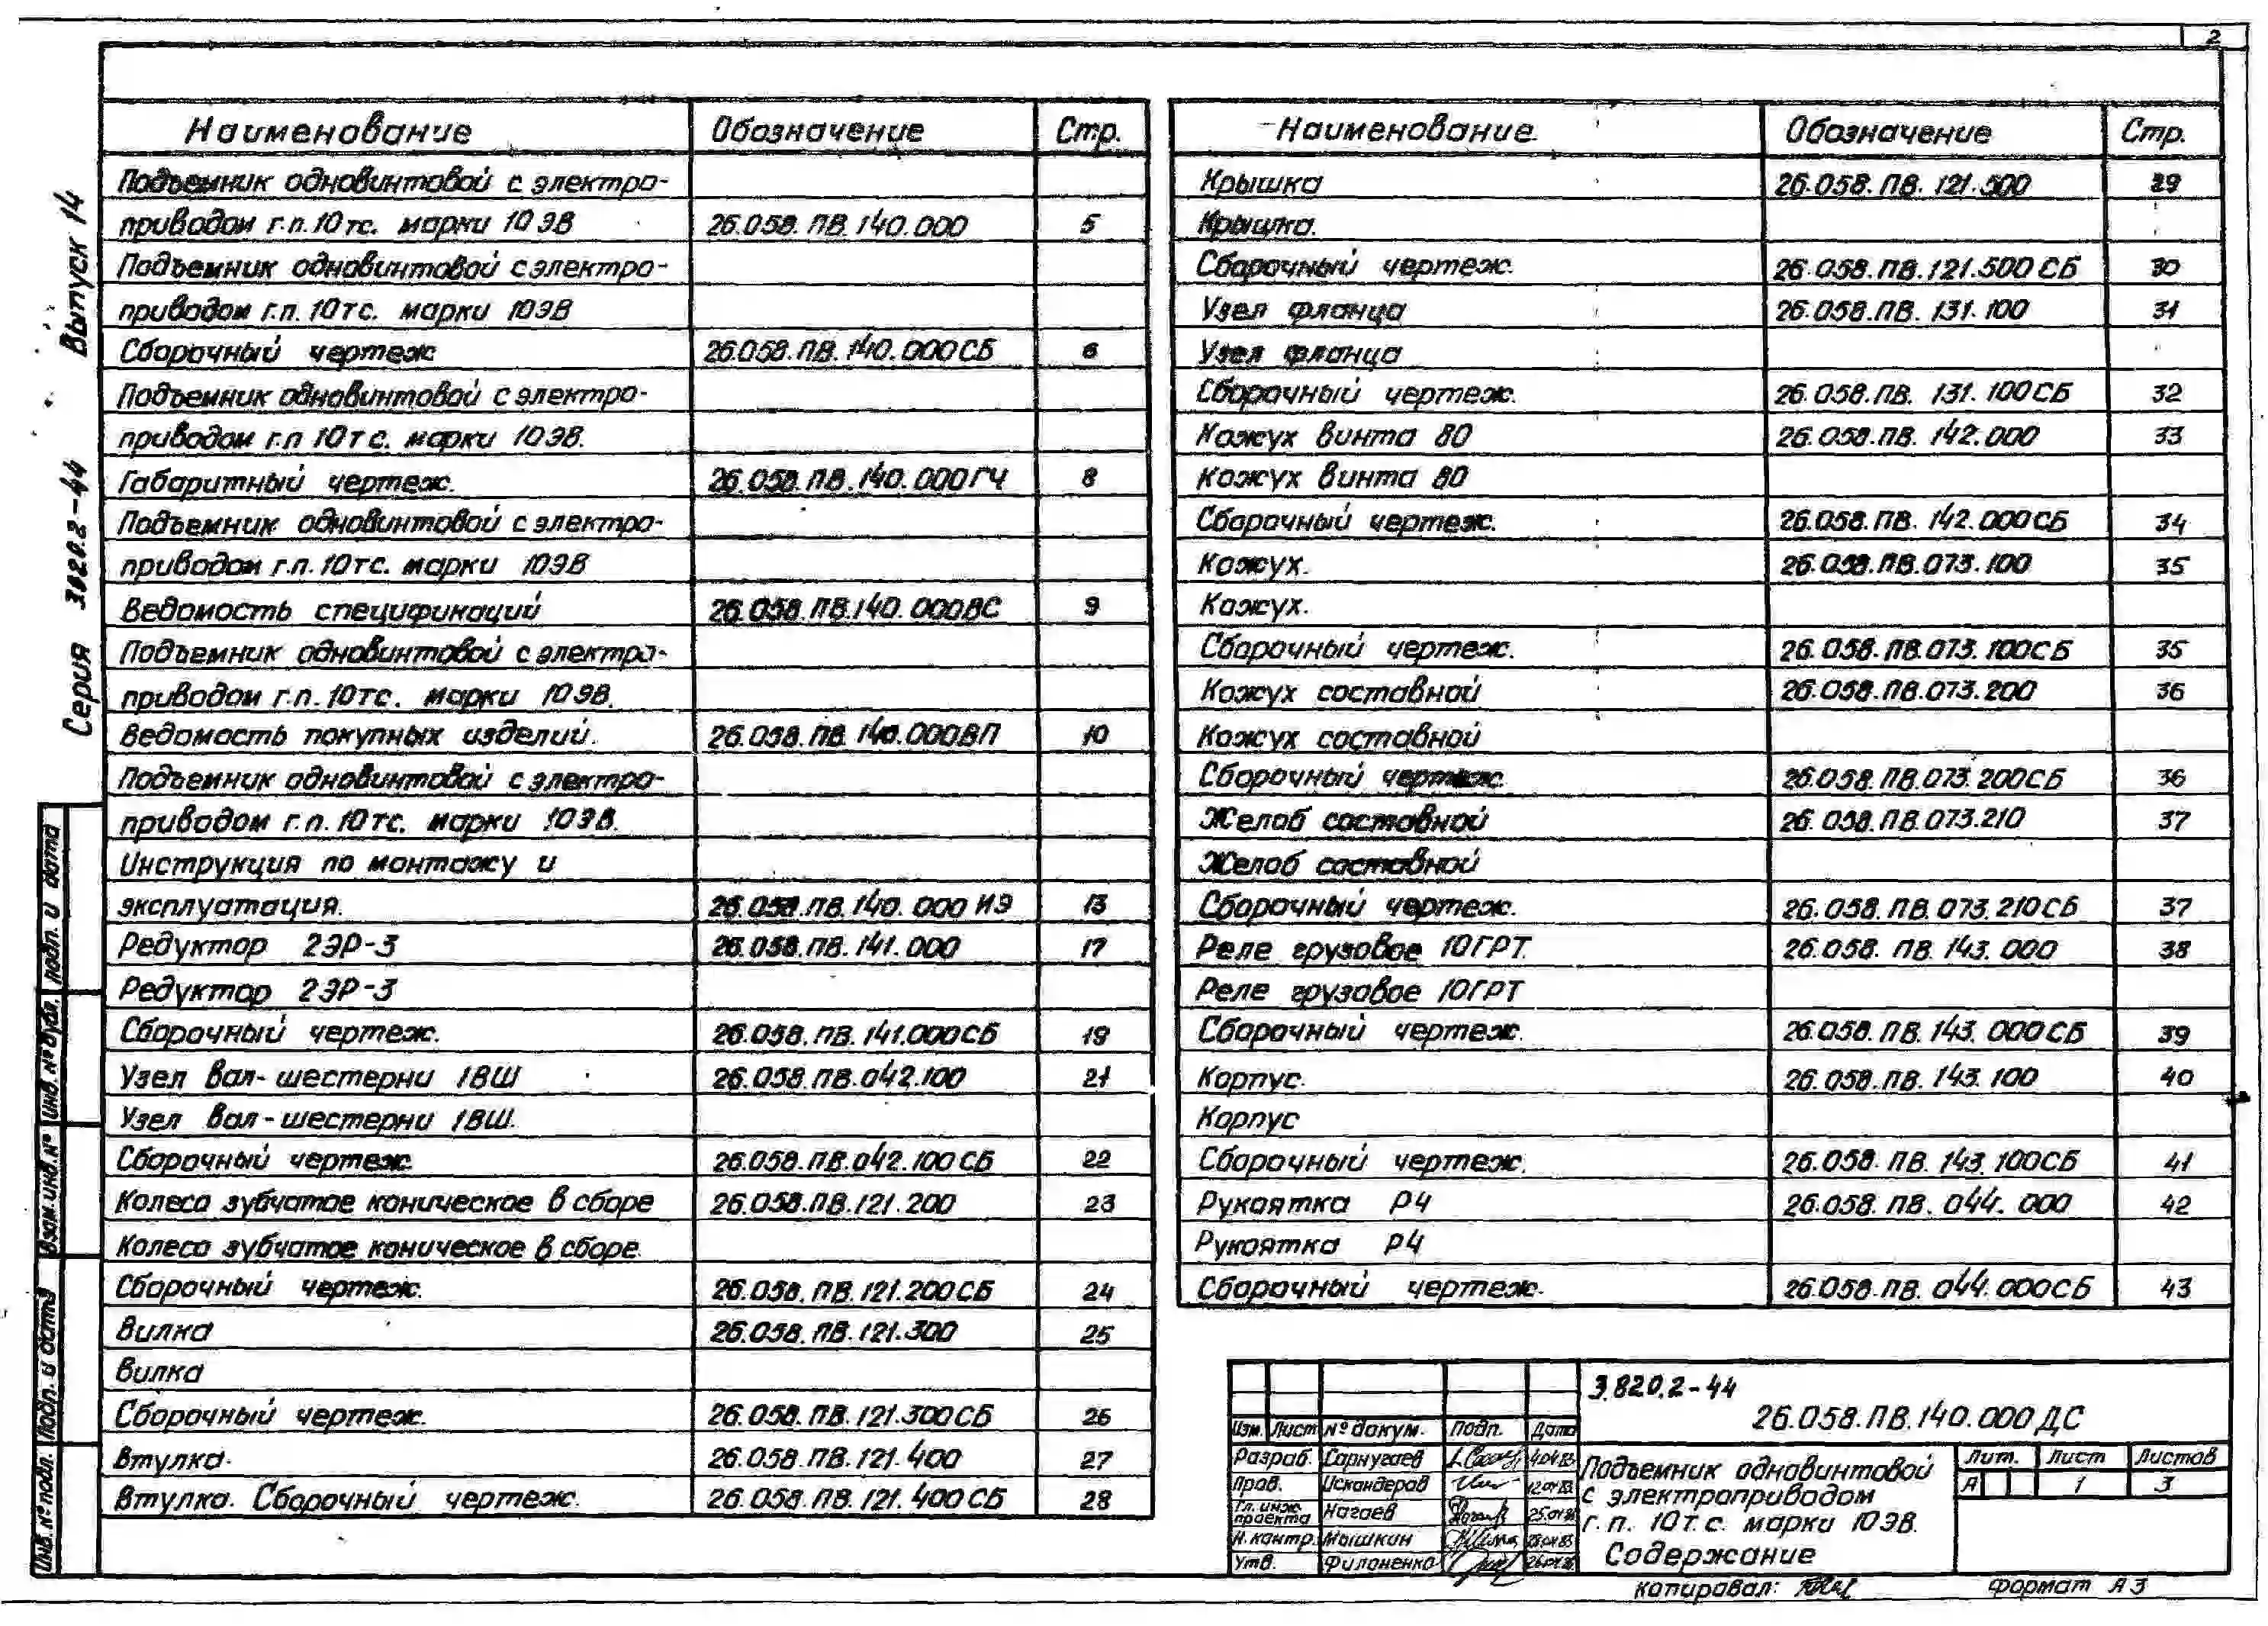 2
Серия 3.820.2-44 Выпуск 14
Наименование Обозначение Стр.
Подъемник одновинтовой с электро-
приводом г.п. 10тс. марки 10ЭВ 26.058.ПВ.140.000 5
Подъемник одновинтовой с электро-
приводом г.п. 10тс. марки 10ЭВ
Сборочный чертеж 26.058.ПВ.140.000СБ 6
Подъемник одновинтовой с электро-
приводом г.п 10тс. марки 10ЭВ.
Габаритный чертеж. 26.058.ПВ.140.000ГЧ 8
Подъемник одновинтовой с электро-
приводом г.п. 10тс. марки 10ЭВ
Ведомость спецификаций 26.058.ПВ.140.000ВС 9
Подъемник одновинтовой с электро-
приводом г.п. 10тс. марки 10ЭВ.
Ведомость покупных изделий. 26.058.ПВ.140.000ВП 10
Подъемник одновинтовой с электро-
приводом г.п. 10тс. марки 10ЭВ.
Инструкция по монтажу и
эксплуатация. 26.058.ПВ.140.000ИЭ 13
Редуктор 2ЭР-3 26.058.ПВ.141.000 17
Редуктор 2ЭР-3
Сборочный чертеж. 26.058.ПВ.141.000СБ 19
Узел вал-шестерни 1ВШ 26.058.ПВ.042.100 21
Узел вал-шестерни 1ВШ.
Сборочный чертеж 26.058.ПВ.042.100СБ 22
Колесо зубчатое коническое в сборе 26.058.ПВ.121.200 23
Колесо зубчатое коническое в сборе.
Сборочный чертеж. 26.058.ПВ.121.200СБ 24
Вилка 26.058.ПВ.121.300 25
Вилка
Сборочный чертеж. 26.058.ПВ.121.300СБ 26
Втулка. 26.058.ПВ.121.400 27
Втулка. Сборочный чертеж. 26.058.ПВ.121.400СБ 28
Наименование. Обозначение Стр.
Крышка 26.058.ПВ.121.500 29
Крышка.
Сборочный чертеж. 26.058.ПВ.121.500СБ 30
Узел фланца 26.058.ПВ.131.100 31
Узел фланца
Сборочный чертеж. 26.058.ПВ.131.100СБ 32
Кожух винта 80 26.058.ПВ.142.000 33
Кожух винта 80
Сборочный чертеж. 26.058.ПВ.142.000СБ 34
Кожух. 26.058.ПВ.073.100 35
Кожух.
Сборочный чертеж. 26.058.ПВ.073.100СБ 35
Кожух составной 26.058.ПВ.073.200 36
Кожух составной
Сборочный чертеж. 26.058.ПВ.073.200СБ 36
Желоб составной 26.058.ПВ.073.210 37
Желоб составной
Сборочный чертеж. 26.058.ПВ.073.210СБ 37
Реле грузовое 10ГРТ. 26.058.ПВ.143.000 38
Реле грузовое 10ГРТ
Сборочный чертеж. 26.058.ПВ.143.000СБ 39
Корпус. 26.058.ПВ.143.100 40
Корпус
Сборочный чертеж. 26.058.ПВ.143.100СБ 41
Рукоятка Р4 26.058.ПВ.044.000 42
Рукоятка Р4
Сборочный чертеж. 26.058.ПВ.044.000СБ 43
Подп. и дата
Инв. № дубл.
Взам. инв. №
Подп. и дата
Инв. № подл.
3.820.2-44
26.058.ПВ.140.000ДС
Изм. Лист № докум. Подп. Дата
Разраб. Сарнугаев
Пров. Искандеров
Гл. инж. проекта Нагаев
Н.контр. Мышкин
Утв. Филоненко
Подъемник одновинтовой
с электроприводом
г.п. 10т.с. марки 10ЭВ.
Содержание
Лит. Лист Листов
А 1 3
Копировал: Формат А3